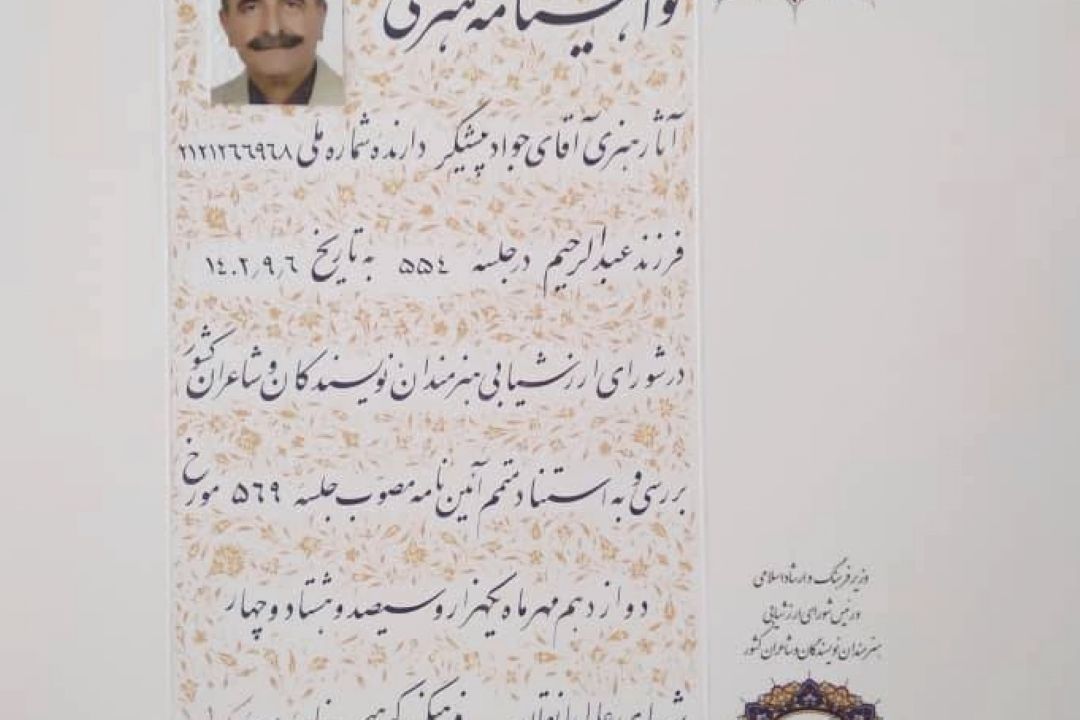 گواهینامه هنری
آثار هنری آقای جواد پیشگر دارنده شماره ملی ۲۱۲۱۲۶۶۹۶۸
فرزند عبدالرحیم در جلسه ۵۵۴ به تاریخ ۱۴۰۲٫۹٫۶
در شورای ارزشیابی هنرمندان نویسندگان و شاعران کشور
بررسی و به استناد متمم آئین نامه مصوب جلسه ۵۶۹ مورخ
دوازدهم مهر ماه یکهزار و سیصد و هشتاد و چهار
شورای عالی انقلاب فرهنگی
وزیر فرهنگ و ارشاد اسلامی
و رئیس شورای ارزشیابی
هنرمندان نویسندگان و شاعران کشور